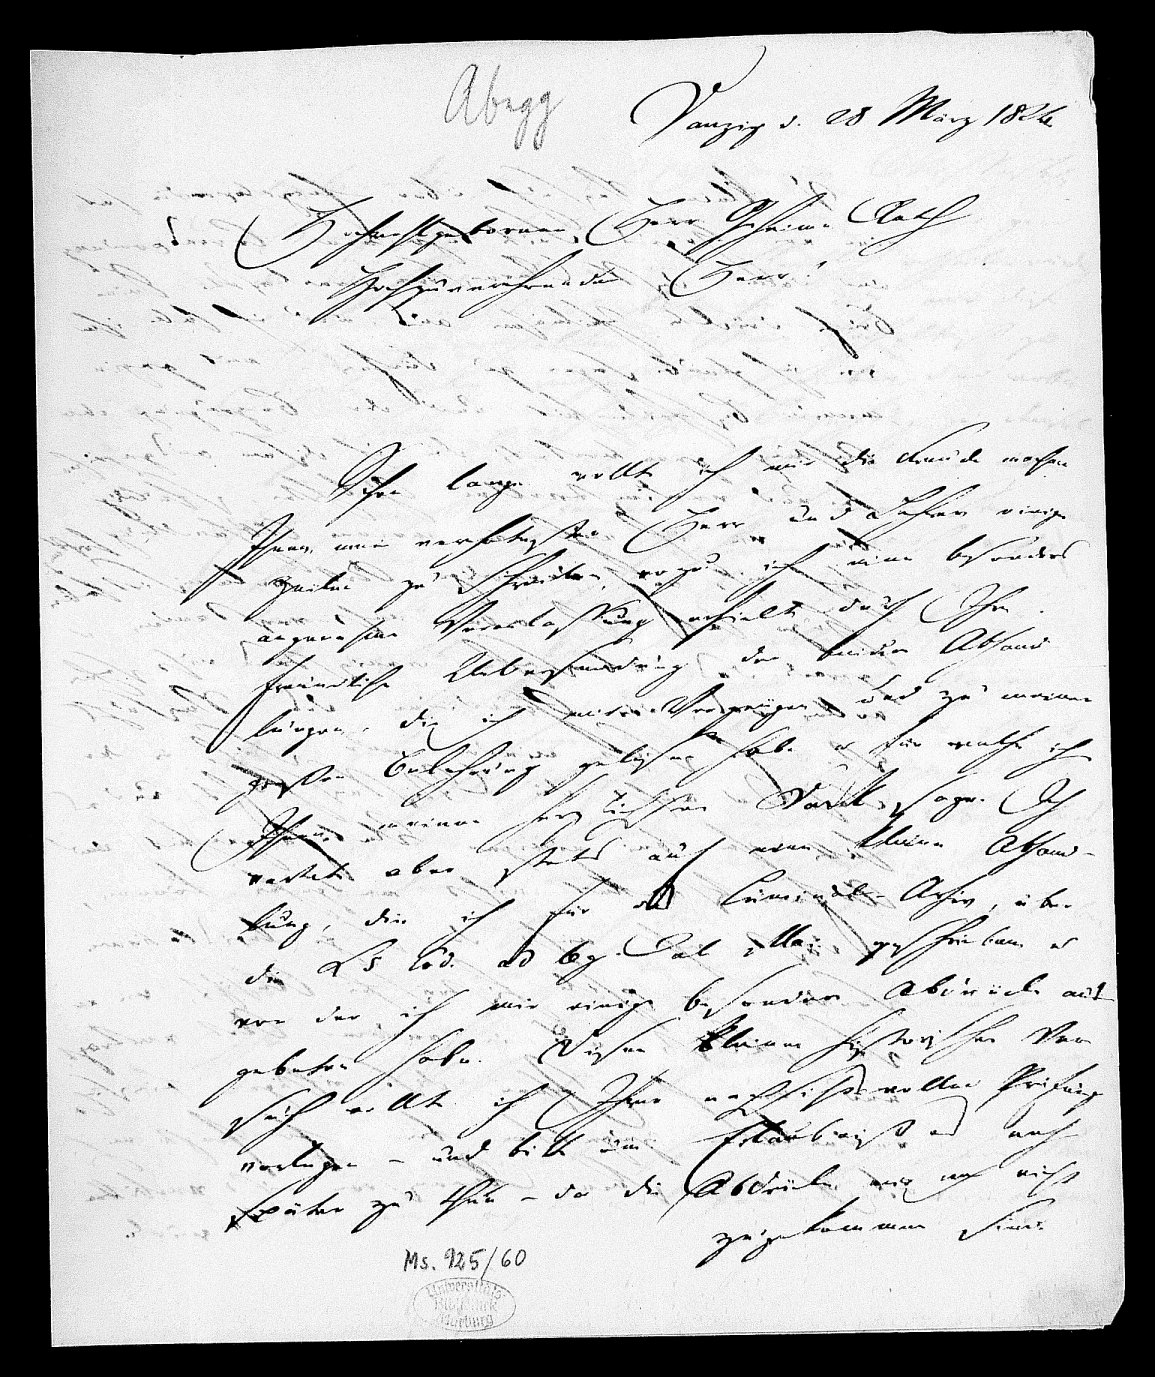 Abegg
Danzig d. 28 März 1826
Hochwohlgeborner, Herr Geheime Rath
Hochzuverehrender Herr!
Schon lange wollte ich mir die Freude machen
Ihnen, mein verehrtester Herr und Lehrer einige
Zeilen zu schreiben, wozu ich eine besonders
angenehme Veranlassung erhielt durch Ihre
freundliche Uebersendung der beiden Abhand
lungen, die ich mit Vergnügen und zu meiner
großen Belehrung gelesen habe u für welche ich
Ihnen meinen herzlichsten Dank sage. Ich
wartete aber stets auf eine kleine Abhand-
lung, die ich für das Criminal-Archiv, über
die L 5 Cod. ad leg. Jul. Maj. geschrieben u
von der ich mir einige besondere Abdrücke aus
gebeten habe. Diesen kleinen historischen Ver
such wollte ich Ihrer nachsichtsvollen Prüfung
vorlegen – und bitte um Erlaubniß es noch
später zu thun – da die Abdrücke mir noch nicht
zugekommen sind.
Ms. 925/60
Universitäts-
Bibliothek
Marburg